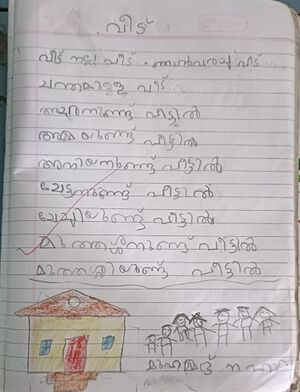 വീട്
വീട് നല്ല വീട് ഞാൻ വരച്ച വീട്
ചന്തമുള്ള വീട്
അച്ഛനുണ്ട് വീട്ടിൽ
അമ്മയുണ്ട് വീട്ടിൽ
അനിയനുണ്ട് വീട്ടിൽ
ചേട്ടനുണ്ട് വീട്ടിൽ
ചേച്ചിയുണ്ട് വീട്ടിൽ
മുത്തശ്ശനുണ്ട് വീട്ടിൽ
മുത്തശ്ശിയുണ്ട് വീട്ടിൽ
മുഹമ്മദ്